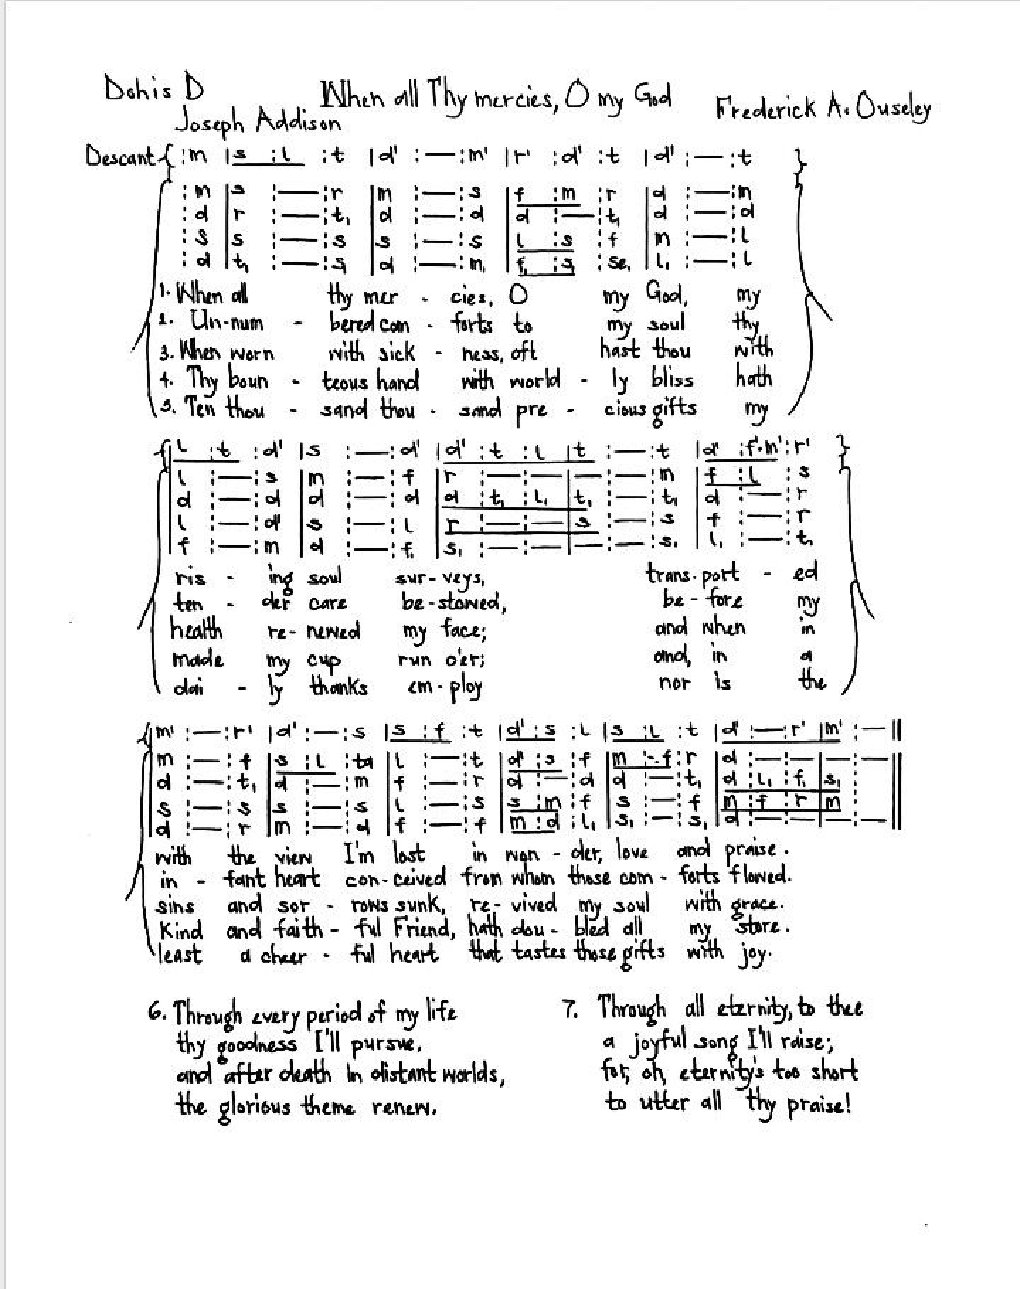 Doh is D
When all Thy mercies, O my God
Frederick A. Ouseley
Joseph Addison
Descant { :m |s :l :t |d' :—:m' |r' :d' :t |d' :—:t }
:m |s :—:r |m :—:s |f :m :r |d :—:m
:d |r :—:t, |d :—:d |d :—:t, |d :—:d
:s |s :—:s |s :—:s |l :s :f |m :—:l
:d |t, :—:s, |d :—:m, |f, :s, :se, |l, :—:l
1. When all thy mer - cies, O my God, my
2. Un-num - bered com - forts to my soul thy
3. When worn with sick - ness, oft hast thou with
4. Thy boun - teous hand with world - ly bliss hath
5. Ten thou - sand thou - sand pre - cious gifts my
{ l :t :d' |s :—:d' |d' :t :l |t :—:t |d' :f'.m':r' }
l :—:s |m :—:f |r :—:— |— :—:m |f :l :s
d :—:d |d :—:d |d :t, :l, |t, :—:t, |d :—:r
l :—:d' |s :—:l |r :—:— |s :—:s |f :—:r
f :—:m |d :—:f, |s, :—:— |— :—:s, |l, :—:t,
ris - ing soul sur-veys, trans-port - ed
ten - der care be-stowed, be-fore my
health re-newed my face; and when in
made my cup run o'er; and, in a
dai - ly thanks em-ploy nor is the
{ m' :—:r' |d' :—:s |s :f :t |d' :s :l |s :l :t |d' :—:r' |m' :—||
m :—:f |s :l :ta |l :—:t |d' :s :f |m :-.f:r |d :—:— |— :—
d :—:t, |d :—:m |f :—:r |d :—:d |d :—:t, |d :l, :f, |s, :—
s :—:s |s :—:s |l :—:s |s :m :f |s :—:f |m :f :r |m :—
d :—:r |m :—:d |f :—:f |m :d :l, |s, :—:s, |d :—:— |— :—
with the view I'm lost in won - der, love and praise.
in - fant heart con-ceived from whom those com - forts flowed.
sins and sor - rows sunk, re-vived my soul with grace.
Kind and faith - ful Friend, hath dou - bled all my store.
least a cheer - ful heart that tastes those gifts with joy.
6. Through every period of my life
thy goodness I'll pursue.
and after death in distant worlds,
the glorious theme renew.
7. Through all eternity, to thee
a joyful song I'll raise;
for, oh, eternity's too short
to utter all thy praise!